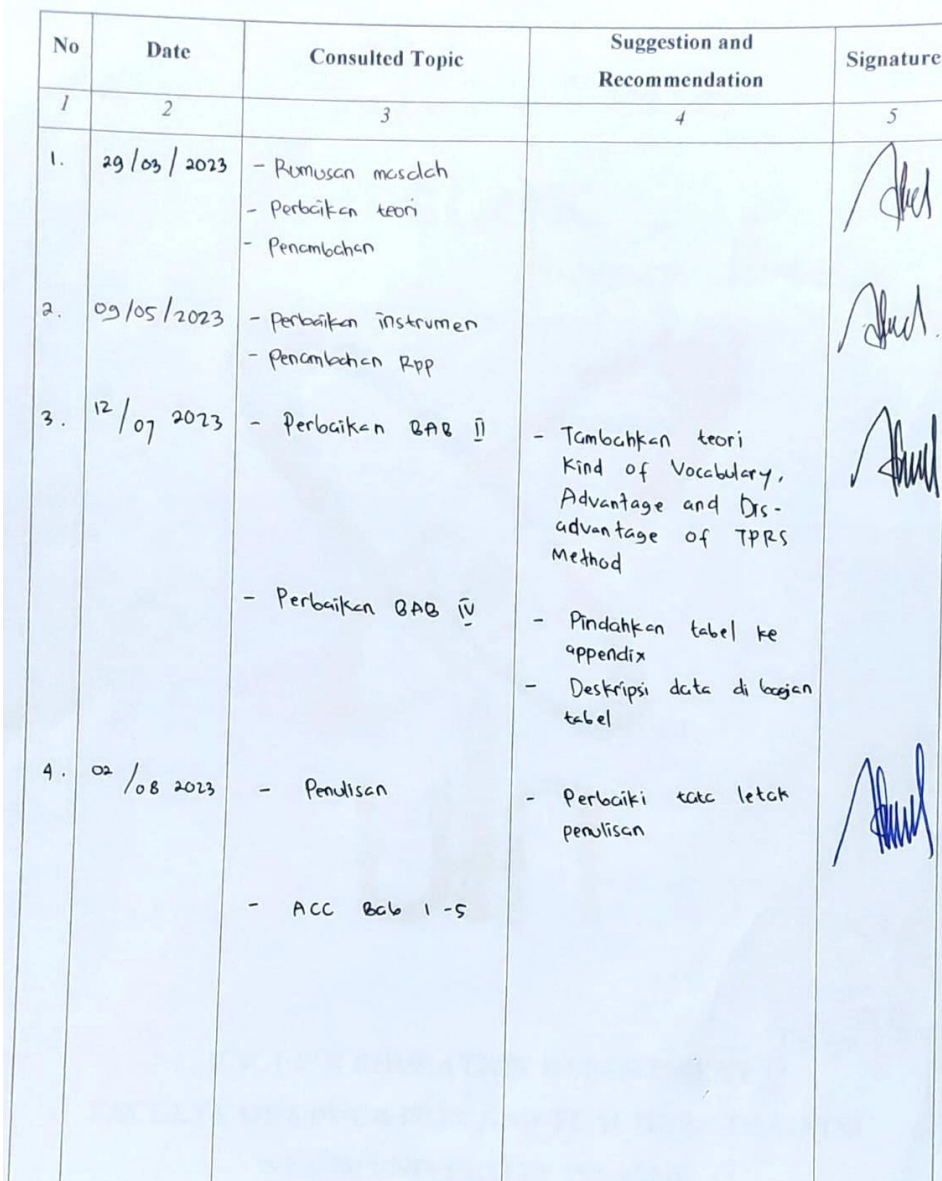 No Date Consulted Topic Suggestion and Recommendation Signature
1 2 3 4 5
1. 29/03/2023 - Rumusan masalah
- Perbaikan teori
- Penambahan
2. 09/05/2023 - Perbaikan instrumen
- Penambahan Rpp
3. 12/07 2023 - Perbaikan BAB II - Tambahkan teori
Kind of Vocabulary,
Advantage and Dis-
advantage of TPRS
Method
- Perbaikan BAB IV - Pindahkan tabel ke
appendix
- Deskripsi data di
tabel
4. 02/08 2023 - Penulisan - Perbaiki tata letak
penulisan
- ACC Bab 1-5